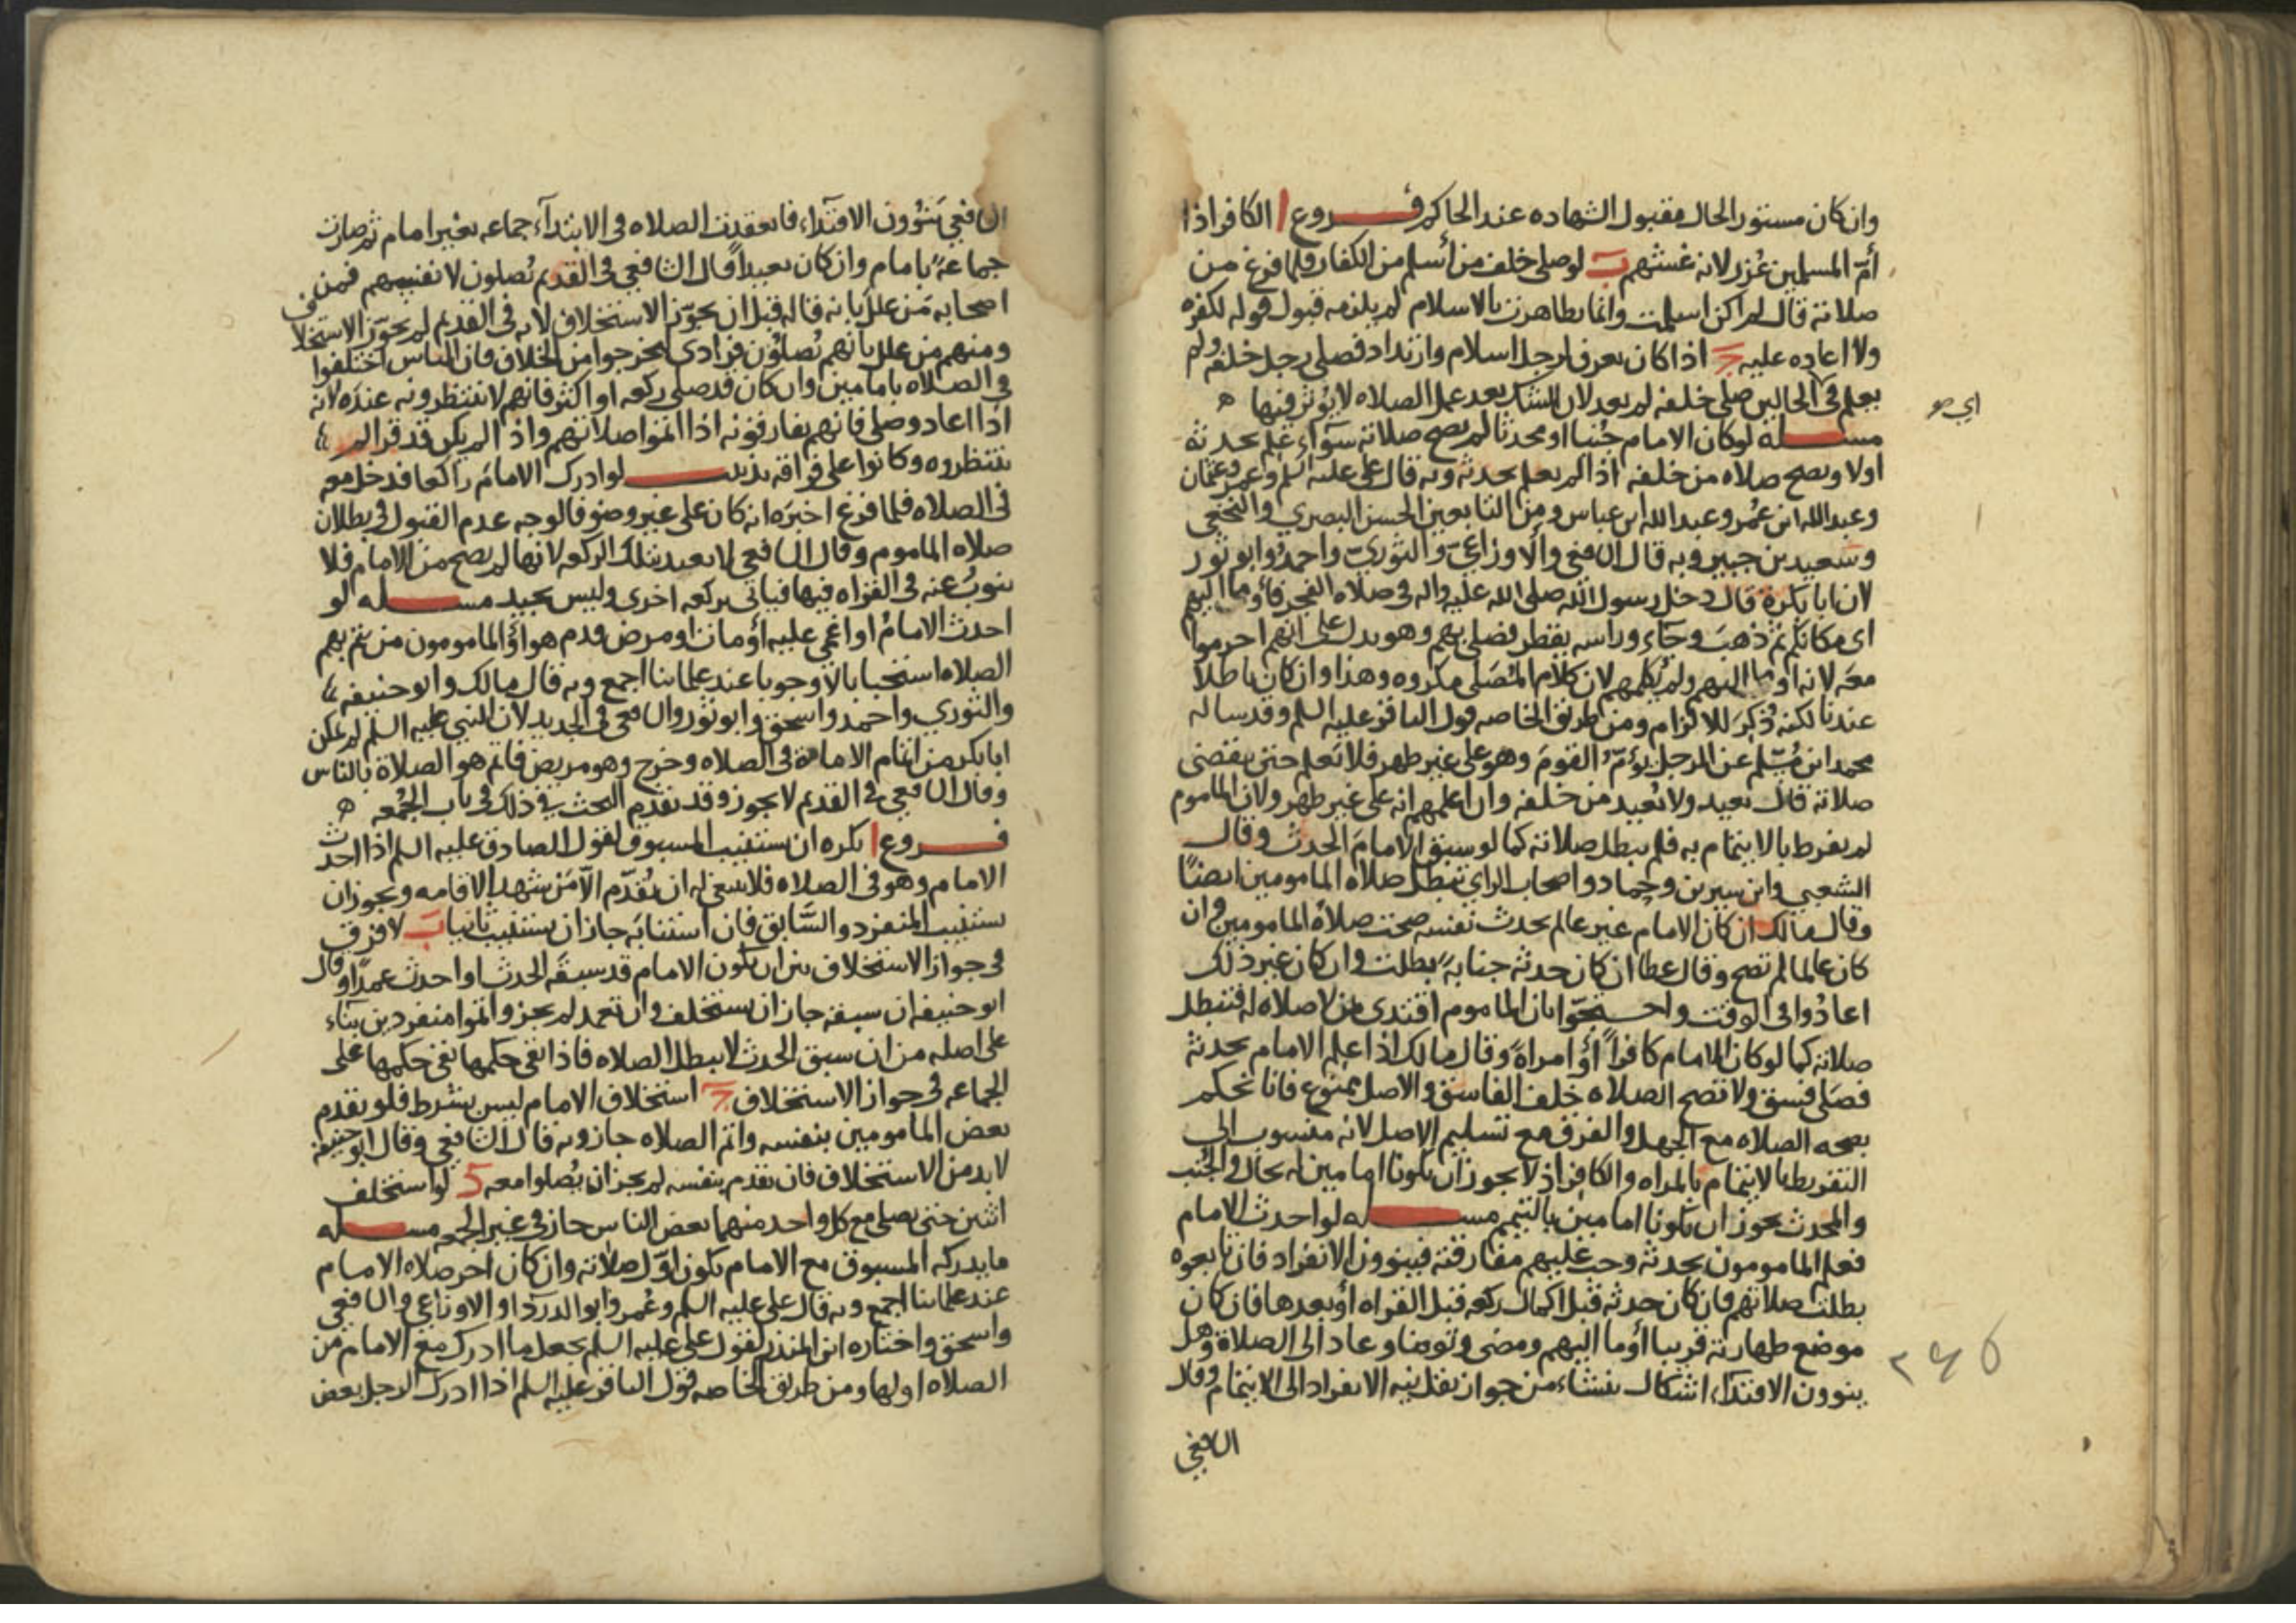 وان كان مستور الحال مقبول الشهاده عند الحاكم فروع ا الكافر اذا
أمّ المسلمين عُزر لانه غشهم ب لو صلى خلف من أسلم من الكفار فلما فرغ من
صلاته قال لم اكن اسلمت وانما تظاهرت بالاسلام لم يلزمه قبول قوله لكفره
ولا اعاده عليه ج اذا كان يعرف لرجل اسلام وارتداد فصلى رجل خلفه ولم
يعلم فى اى الحالين صلى خلفه لم يعد لان الشك بعد عمل الصلاه لا يؤثر فيها ه
مسله لو كان الامام جُنبا او محدثا لم تصح صلاته سوآء علم بحدثه
اولا وتصح صلاه من خلفه اذا لم يعلم بحدثه وبه قال على عليه السلم وعمر وعثمان
وعبد الله ابن عُمر وعبد الله ابن عباس ومن التابعين الحسن البصري والنخعي
وسعيد بن جبير وبه قال الشافعى والاوزاعىّ والثوريّ واحمدُ وابو ثور
لان ابا بكرة قال دخل رسول الله صلى الله عليه واله فى صلاه الفجر فأومأ اليهم
اى مكانكم ثم ذهب وجآء وراسه يقطر فصلى بهم وهو يدل على انهم احرموا
معه لانه اومأ اليهم ولم يُكلمهم لان كلام المُصَلى مكروه وهذا وان كان باطلا
عندنا لكنه ذُكِرَ للالزام ومن طريق الخاصه قول الباقر عليه السلم وقد ساله
محمد ابن مُسْلم عن الرجل يؤمّ القومَ وهو على غير طهر فلا تعلم حتى تنقضى
صلاته قال يعيد ولا يُعيد من خلفه وان اعلمهم انه على غير طهر ولان الماموم
لم يفرط بالايتمام به فلم تبطل صلاته كما لو سبق الامامَ الحدثُ وقال
الشعبي وابن سيرين وحماد واصحاب الراي تبطل صلاه المامومين ايضًا
وقال مالك ان كان الامام غير عالم بحدث نفسه صحت صلاةُ المامومين وان
كان عالما لم تصح وقال عطا ان كان حدثه جنابةً بطلت وان كان غير ذلك
اعادُوا فى الوقت واحتجّوا بان الماموم اقتدى بمن لا صلاه له فتبطل
صلاته كما لو كان الامام كافراً أو امراةً وقال مالك اذا علم الامام بحدثه
فصَلى فسق ولا تصح الصلاه خلف الفاسق والاصل ممنوع فانا نحكم
بصحه الصلاه مع الجهل والفرق مع تسليم الاصل لانه منسوب الى
التفريط بالايتمام بالمراه والكافر اذ لا يجوز ان يكونا امامين له بحال والجُنب
والمحدث يجوز ان يكونا امامين بالتيمم مسله لو احدث الامام
فعلم المامومون بحدثه وجب عليهم مفارقته فينوون الانفراد فان تابعوه
بطلت صلاتهم فان كان حدثه قبل اكمال ركعه قبل القراه أو بعدها فان كان
موضع طهارته قريبا أومأ اليهم ومضى وتوضا وعاد الى الصلاة وهل
ينوون الاقتدآء اشكال ينشاء من جواز نقل نيه الانفراد الى الايتمام وقال
الشافعي
اي صو
٢٤٥
الشافعي يَنوُون الاقتدآء فانعقدت الصلاه فى الابتدآء جماعه بغير امام ثم صارت
جماعةً بامام وان كان بعيداً قال الشافعي فى القديم يُصلون لانفسهم فمن
اصحابه مَن علل بانه قاله قبل ان يجوّز الاستخلاف لانه فى القديم لم يجوّز الاستخلاف
ومنهم من علل بانهم يُصَلوُن فرادى ليخرجوا من الخلاف فان الناس اختلفوا
فى الصلاه بامامين وان كان قد صلى ركعه او اكثر فانهم لا ينتظرونه عنده لانه
اذا اعاد وصلى فانهم يفارقونه اذا اتموا صلاتهم واذا لم يكن قد قرا لم
ينتظروه وكانوا على فراقه تذنيب لو ادرك الامامَ راكعا فدخل معه
فى الصلاه فلما فرغ اخبَره انه كان على غير وضو فالوجه عدم القبول فى بطلان
صلاه الماموم وقال الشافعي لا يعيد بتلك الركعه لانها لم تصح من الامام فلا
ينوبُ عنه فى القراه فيها فياتى بركعه اخرى وليس بجيد مسله لو
احدث الامامُ او اغمي عليه أو مات او مرض قدم هو أو المامومون من يتم بهم
الصلاه استحبابا لا وجوبا عند علمائنا اجمع وبه قال مالك وابو حنيفه
والثوري واحمد واسحق وابو ثور والشافعى فى الجديد لان النبي عليه السلم لم يمكن
ابا بكر من اتمام الامامة فى الصلاه وخرج وهو مريض فاتم هو الصلاة بالناس
وقال الشافعي فى القديم لا يجوز وقد تقدم البحث في ذلك فى باب الجُمعه ه
فروع ا يكره ان يستنيب المسبوق لقول الصادق عليه السلم اذا احدث
الامام وهو فى الصلاه فلا ينبغى له ان يُقدّم الّا من شهد الاقامه ويجوز ان
يستنيب المنفرد والسَّابق فان استنابَه جاز ان يستنيب ثانيا ب لا فرق
فى جواز الاستخلاف بين ان يكون الامام قد سبقَه الحدث او احدث عمدًا وقال
ابو حنيفه ان سبقه جاز ان يستخلف وان تعمد لم يجز واتموا منفردين بناء
على اصله من ان سبق الحدث لا يبطل الصلاه فاذا بقى حكمها بقى حكمها على
الجماعه فى جواز الاستخلاف ج استخلاف الامام ليس بشرط فلو تقدم
بعض المامومين بنفسه واتم الصلاه جاز وبه قال الشافعي وقال ابو حنيفه
لا بد من الاستخلاف فان تقدم بنفسه لم يجز ان يُصلوا معه د لو استخلف
اثنين حتى يصلى مع كل واحد منهما بعض الناس جاز فى غير الجمعه مسله
ما يدركه المسبوق مع الامام يكون اوّل صلاته وان كان اخر صلاه الامام
عند علمائنا اجمع وبه قال على عليه السلم وعُمر وابو الدردآء والاوزاعي والشافعي
واسحق واختاره ابن المنذر لقول على عليه السلم يجعل ما ادرك مع الامام من
الصلاه اولها ومن طريق الخاصه قول الباقر عليه السلم اذا ادرك الرجل بعض